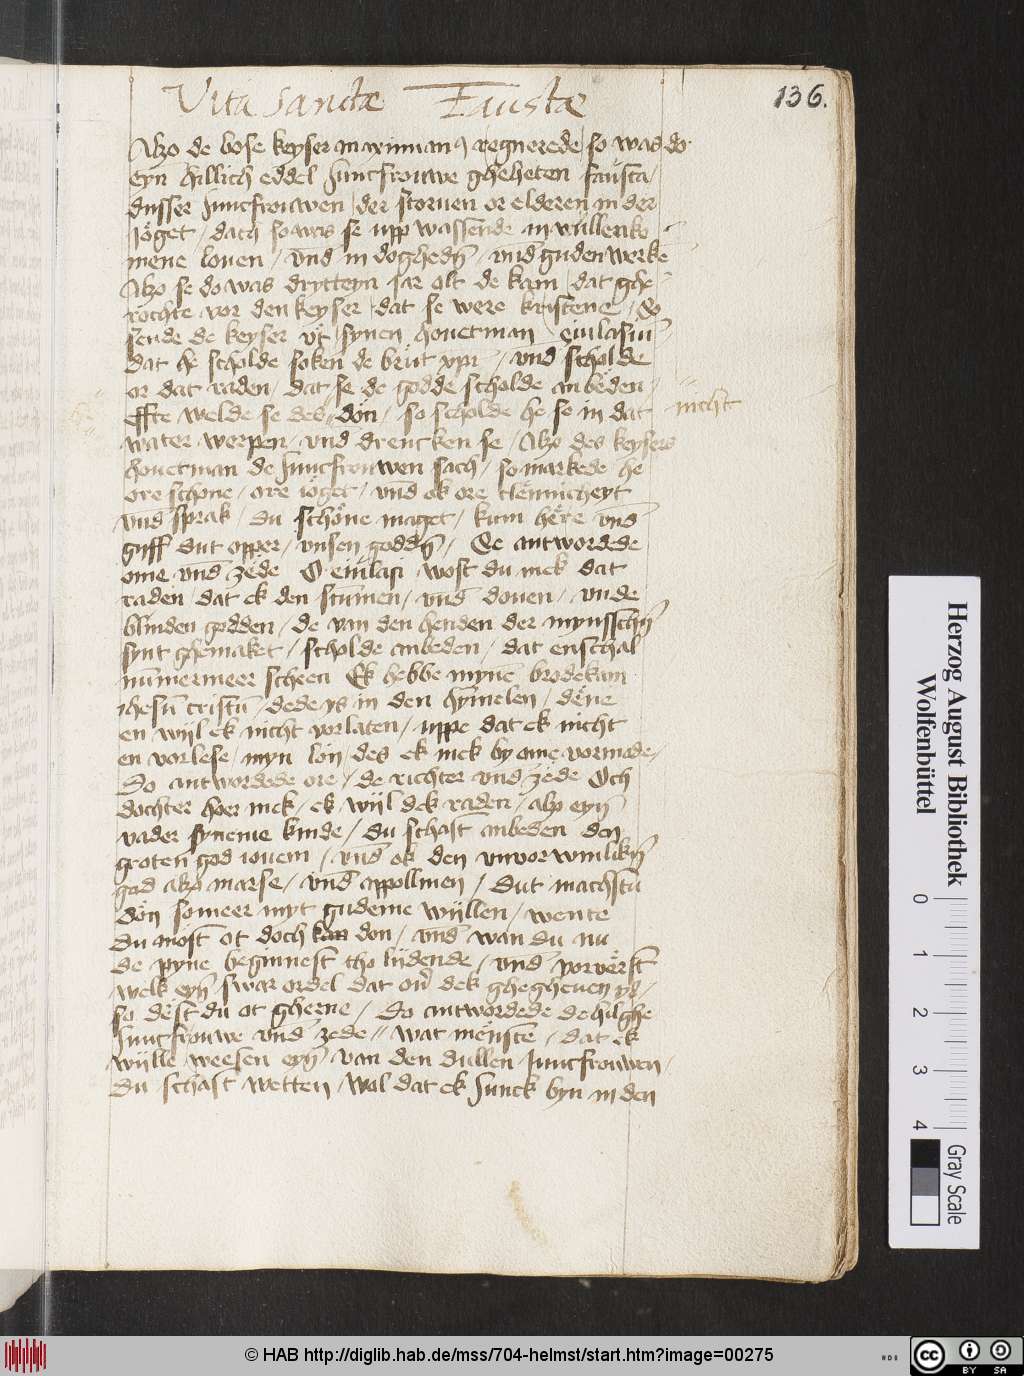 Vita Sanctæ Faustæ
136.
Alzo de bose keyser maximianus regnerede / so was do
eyn hillich eddel Juncfrouwe gheheten fausta /
dusser Juncfrouwen / der storuen or elderen in der
Jöget / doch so was se upp wassende in vullenko
mene louen / vnd in doghedē / vnd guden werke
Alzo se do was drytteyn Jar olt do kam / dat ghe
rochte vor den keyser / dat se were kristene / Do
sende de keyser vt / synen houetman euilasiu
dat he scholde soken de brut xpi / vnd scholde
or dat raden / dat se de godde scholde anbeden /
effte welde se des don / so scholde he se in dat
nicht
water werpen / vnd drencken se / Alzo des keysers
houetman de Juncfrouwen sach / so markede he
ore schone / ore ioget / vnd ok ore clenlicheyt
vnd sprak / du schöne maget / kum here vnd
giff dut opper / vnsen goddē / Se antwordede
ome vnd zede O euilasi wost du mek dat
raden / dat ek den stūmen / vnd douen / vnde
blinden godden / de van den henden der mynsschē
synt ghemaket / scholde anbeden / dat enschal
nūmermeer scheen Ek hebbe mynē brodekam
ihesū cristū / dede ys in den hymelen / dene
en wyl ek nicht vorlaten / uppe dat ek nicht
en vorlese / myn lön / des ek mek by ome vormode /
Do antwordede ore / de richter vnd zede Och
dochter hoer mek / ek wyl dek raden / alzo eyn
vader syneme kinde / du schast anbeden den
groten god iouem / vnd ok den vnvorwinlikē
god alzo marse / vnd appollinen / Dut machstu
dön so meer myt gudeme wyllen / wente
du most ot doch don / vnd wan du nu
de pyne beginnest tho lydende / vnd vorverst
welk eyn swar ordel dat ouer dek ghegheuen ys /
so dest du ot gheerne / Do antwordede de hilghe
Juncfrouwe vnd zede // wat menste / dat ek
wylle weesen eyn van den dullen Juncfrouwen /
du schast wetten / wol dat ek Junck byn in den
Herzog August Bibliothek
Wolfenbüttel
0 1 2 3 4
Gray Scale
© HAB http://diglib.hab.de/mss/704-helmst/start.htm?image=00275
cc BY SA